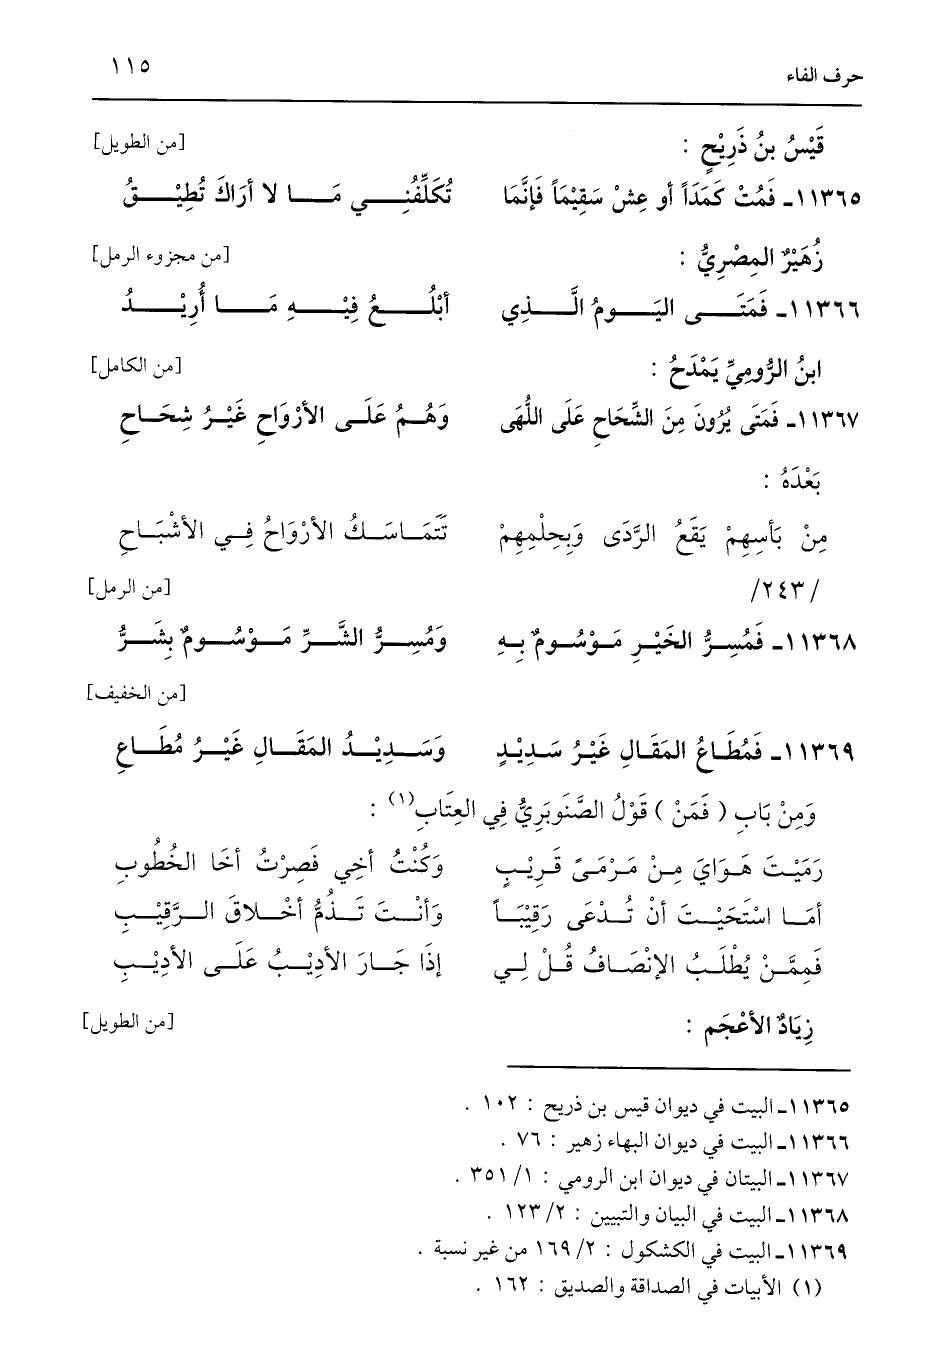 حرف الفاء ١١٥
قَيْسُ بنُ ذَرِيْحٍ : [من الطويل]
١١٣٦٥ـ فَمُتْ كَمَدَاً أو عِشْ سَقِيْمَاً فَإنَّمَا تُكَلِّفُنِي مَا لا أرَاكَ تُطِيْقُ
زُهَيْرٌ المِصْرِيُّ : [من مجزوء الرمل]
١١٣٦٦ـ فَمَتَى اليَومُ الَّذِي أبْلُغُ فِيْهِ مَا أُرِيْدُ
ابنُ الرُّومِيِّ يَمْدَحُ : [من الكامل]
١١٣٦٧ـ فَمَتَى يُرُونَ مِنَ الشِّحَاحِ عَلَى اللُّهَى وَهُمُ عَلَى الأرْوَاحِ غَيْرُ شِحَاحِ
بَعْدَهُ :
مِنْ بَأسِهِمْ يَقَعُ الرَّدَى وَبِحِلْمِهِمْ تَتَمَاسَكُ الأرْوَاحُ فِي الأشْبَاحِ
/٢٤٣/ [من الرمل]
١١٣٦٨ـ فَمُسِرُّ الخَيْرِ مَوْسُومٌ بِهِ وَمُسِرُّ الشَّرِّ مَوْسُومٌ بِشَرُّ
[من الخفيف]
١١٣٦٩ـ فَمُطَاعُ المَقَالِ غَيْرُ سَدِيْدٍ وَسَدِيْدُ المَقَالِ غَيْرُ مُطَاعِ
وَمِنْ بَابِ ( فَمَنْ ) قَوْلُ الصَّنَوبَرِيُّ فِي العِتَابِ(١) :
رَمَيْتَ هَوَايَ مِنْ مَرْمَىً قَرِيْبٍ وَكُنْتُ أخِي فَصِرْتُ أخَا الخُطُوبِ
أمَا اسْتَحْيَيْتَ أنْ تُدْعَى رَقِيْبَاً وَأنْتَ تَذُمُّ أخْلاقَ الرَّقِيْبِ
فَمِمَّنْ يُطْلَبُ الإنْصَافُ قُلْ لِي إذَا جَارَ الأدِيْبُ عَلَى الأدِيْبِ
زِيَادٌ الأعْجَم : [من الطويل]
١١٣٦٥ـ البيت في ديوان قيس بن ذريح : ١٠٢ .
١١٣٦٦ـ البيت في ديوان البهاء زهير : ٧٦ .
١١٣٦٧ـ البيتان في ديوان ابن الرومي : ١/ ٣٥١ .
١١٣٦٨ـ البيت في البيان والتبيين : ٢/ ١٢٣ .
١١٣٦٩ـ البيت في الكشكول : ٢/ ١٦٩ من غير نسبة .
(١) الأبيات في الصداقة والصديق : ١٦٢ .